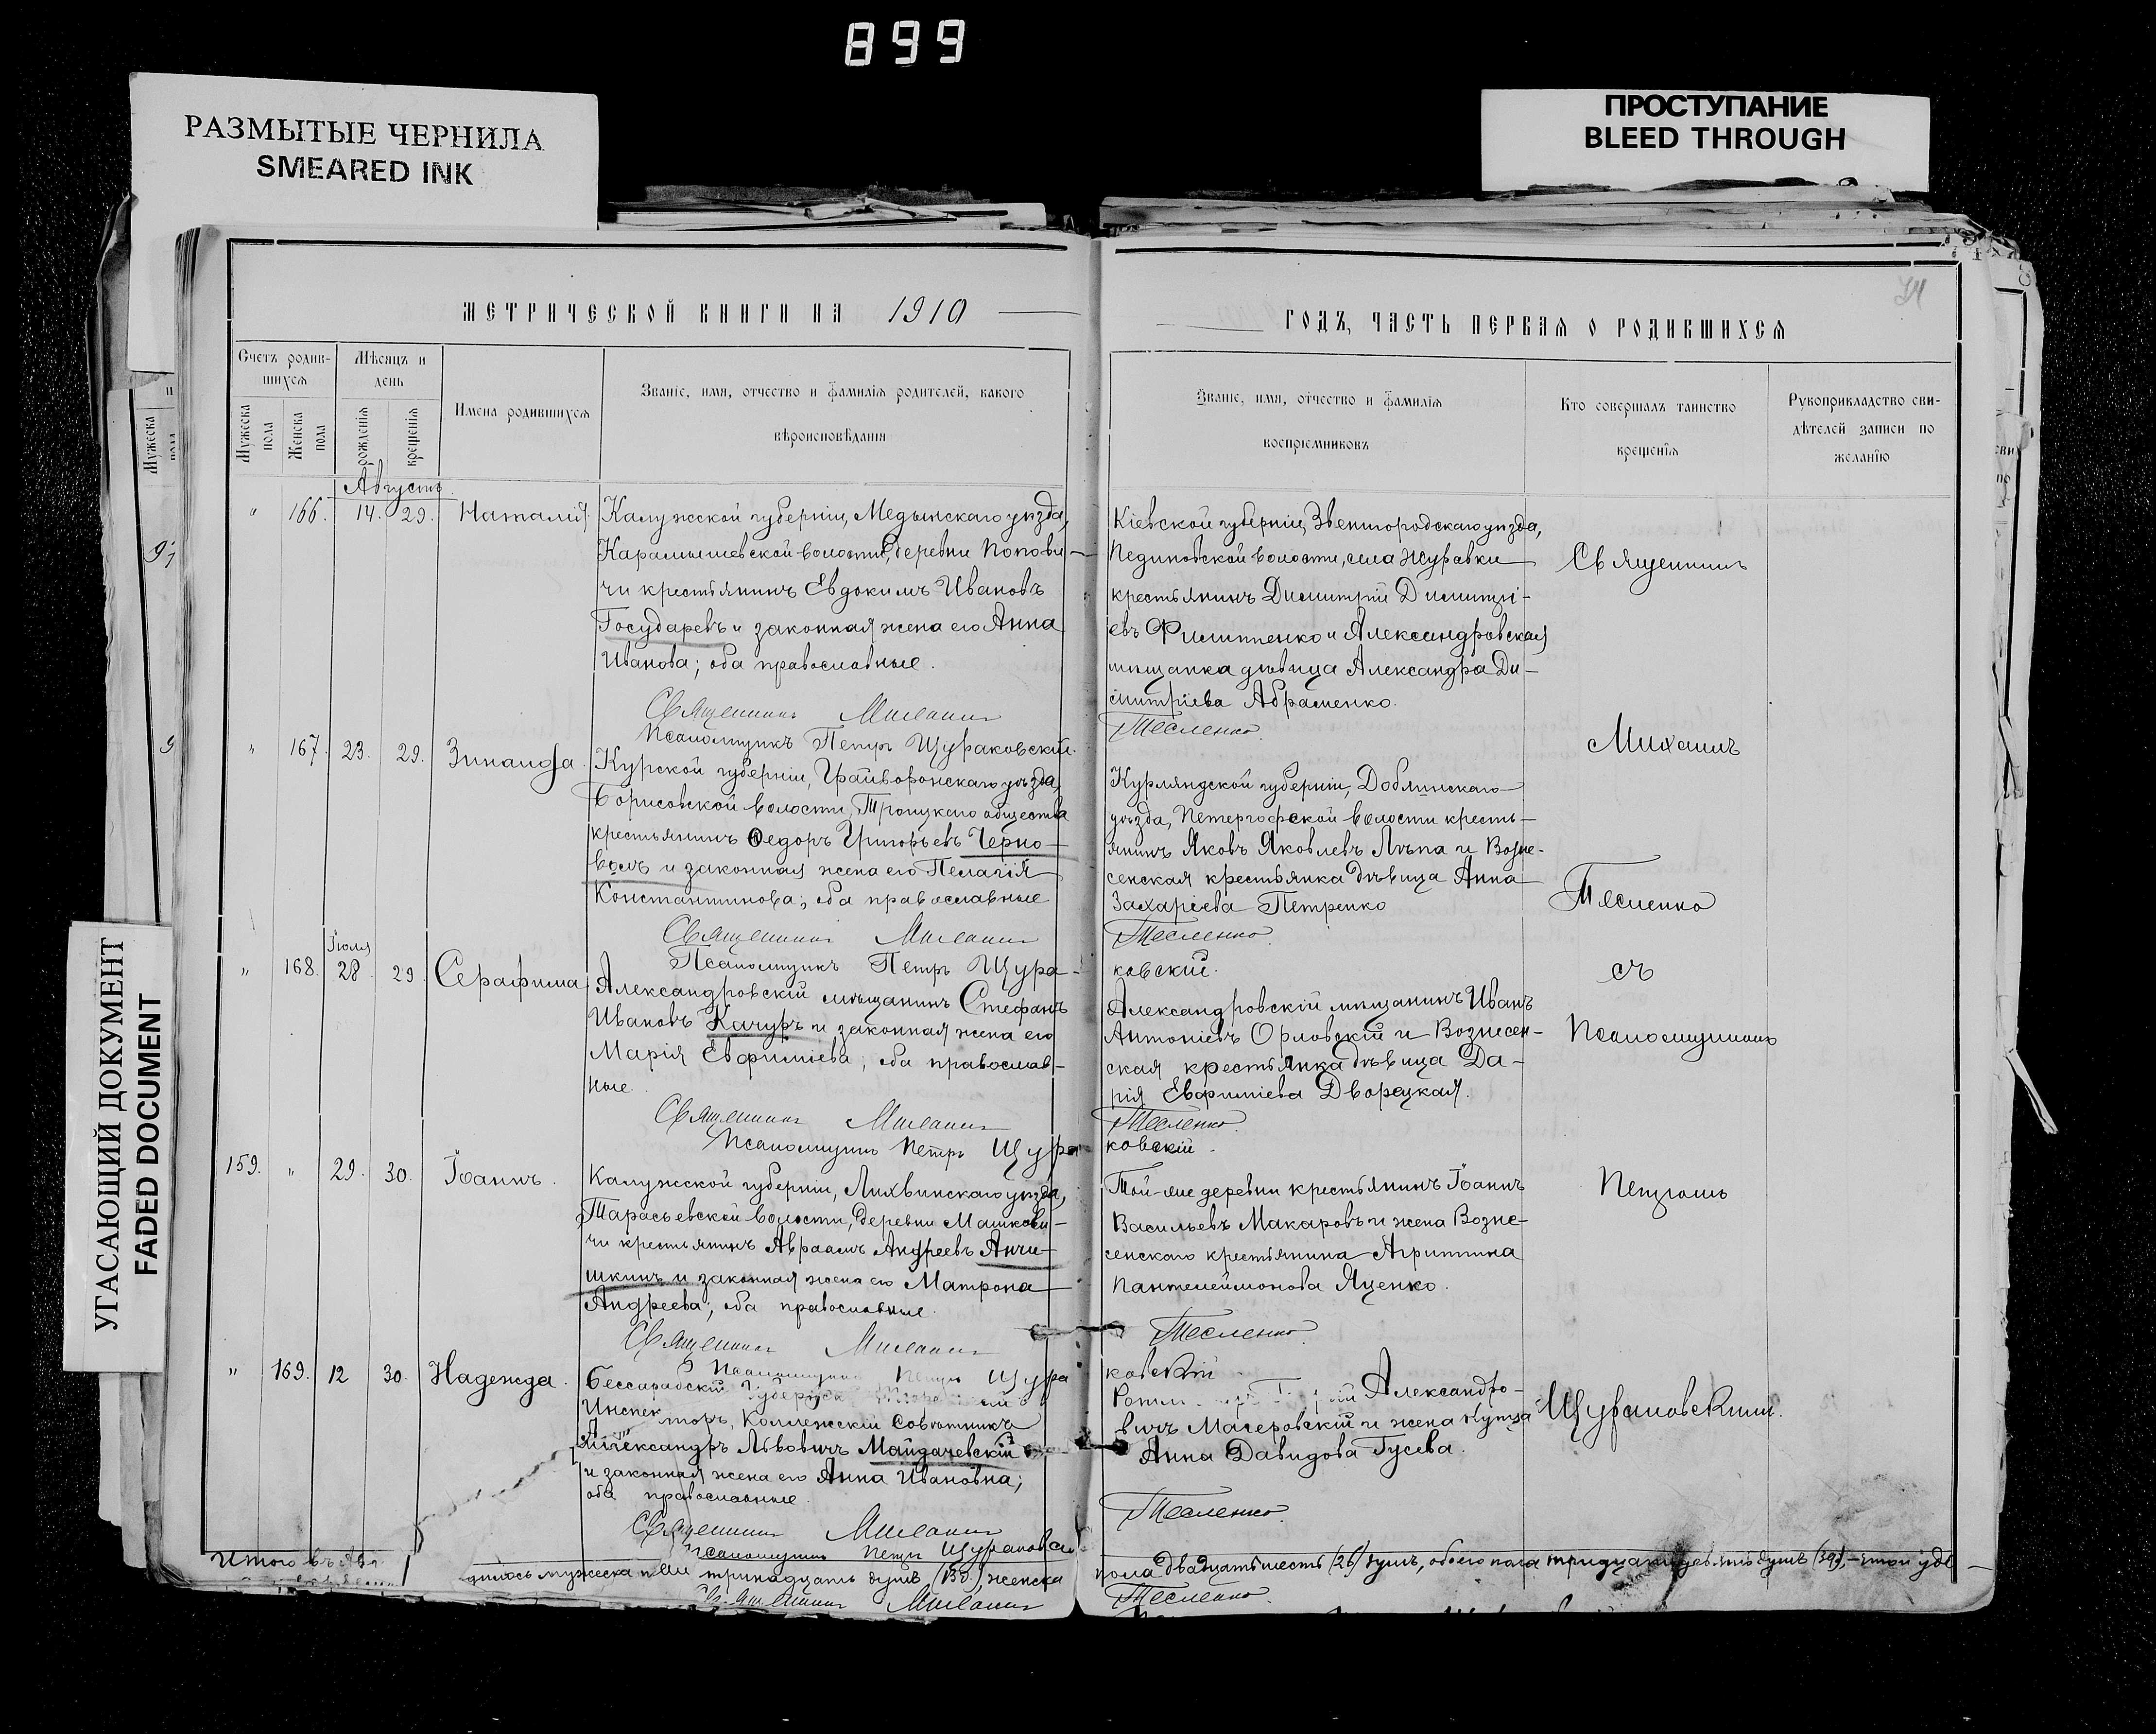 899
РАЗМЫТЫЕ ЧЕРНИЛА
SMEARED INK
ПРОСТУПАНИЕ
BLEED THROUGH
УГАСАЮЩИЙ ДОКУМЕНТ
FADED DOCUMENT
МЕТРИЧЕСКОЙ КНИГИ НА 1910
Счетъ родив-
шихся
Мѣсяцъ и
день
Мужеска
пола
Женска
пола
рожденія
крещенія
Имена родившихся
Званіе, имя, отчество и фамилія родителей, какого
вѣроисповѣданія
Августъ
" 166. 14. 29. Наталія
Калужской губерніи, Медынскаго уѣзда,
Карамышевской волости, деревни Попови-
чи крестьянинъ Евдокимъ Ивановъ
Государевъ и законная жена его Анна
Иванова; оба православные.
Священникъ Михаилъ
Псаломщикъ Петръ Щураковскій.
" 167. 23. 29. Зинаида.
Курской губерніи, Грайворонскаго уѣзда,
Борисовской волости, Троицкаго общества
крестьянинъ Ѳедоръ Григорьевъ Черно-
волъ и законная жена его Пелагія
Константинова; оба православные
Священникъ Михаилъ
Псаломщикъ Петръ Щура-
Іюля
" 168. 28. 29. Серафима
Александровскій мѣщанинъ Стефанъ
Ивановъ Качуръ и законная жена его
Марія Евфиміева; оба православ-
ные.
Священникъ Михаилъ
Псаломщикъ Петръ Щура
159. " 29. 30. Іоаннъ.
Калужской губерніи, Лихвинскаго уѣзда,
Тарасьевской волости, деревни Машкови-
чи крестьянинъ Авраамъ Андреевъ Анчи-
шкинъ и законная жена его Матрона
Андреева; оба православные.
Священникъ Михаилъ
Псаломщикъ Петръ Щура
" 169. 12 30. Надежда.
Бессарабскій Губернскій
Инспекторъ, Коллежскій Совѣтникъ
Александръ Львовичъ Майдачевскій
и законная жена его Анна Ивановна;
оба православные.
Священникъ Михаилъ
Псаломщикъ Петръ Щураковскій
Итого въ Ав
дилось мужеска пола тринадцать душъ (13), женска
Священникъ Михаилъ
74
ГОДЪ, ЧАСТЬ ПЕРВАЯ О РОДИВШИХСЯ
Званіе, имя, отчество и фамилія
воспріемниковъ
Кто совершалъ таинство
крещенія
Рукоприкладство сви-
дѣтелей записи по
желанію
Кіевской губерніи, Звенигородскаго уѣзда,
Пединовской волости, села Журавки
крестьянинъ Димитрій Димитрі-
евъ Филиппенко и Александровская
мѣщанка дѣвица Александра Ди-
митріева Абраменко.
Тесленко.
Курляндской губерніи, Доблинскаго
уѣзда, Петергофской волости кресть-
янинъ Яковъ Яковлевъ Лѣпа и Возне-
сенская крестьянка дѣвица Анна
Захаріева Петренко
Тесленко.
ковскій.
Александровскій мѣщанинъ Иванъ
Антоніевъ Орловскій и Вознесен-
ская крестьянка дѣвица Да-
рія Евфиміева Дворецкая.
Тесленко.
ковскій.
Той-же деревни крестьянинъ Іоаннъ
Васильевъ Макаровъ и жена Возне-
сенскаго крестьянина Агриппина
Пантелеймонова Яценко.
Тесленко.
ковскій
Александро-
вичъ Магеровскій и жена купца
Анна Давидова Гусева.
Тесленко.
пола двадцать шесть (26) душъ, обоего пола тридцать девять душъ (39),
Тесленко.
Священникъ
Михаилъ
Тесленко
съ
Псаломщикомъ
Петромъ
Щураковскимъ.